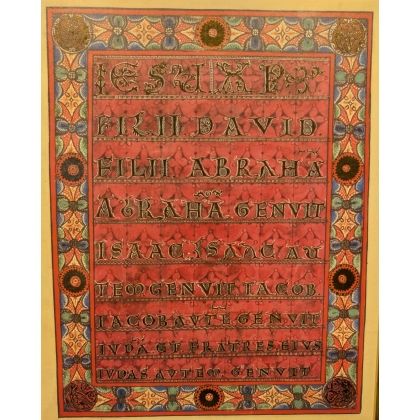 IESU XPI
FILII DAVID
FILII ABRAHĀ
ABRAHA GENUIT
ISAAC. ISAAC. AU
TEM GENUIT IACOB
IACOB AUTE GENUIT
IUDĀ ET FRATRES EIUS
IUDAS AUTEM GENUIT